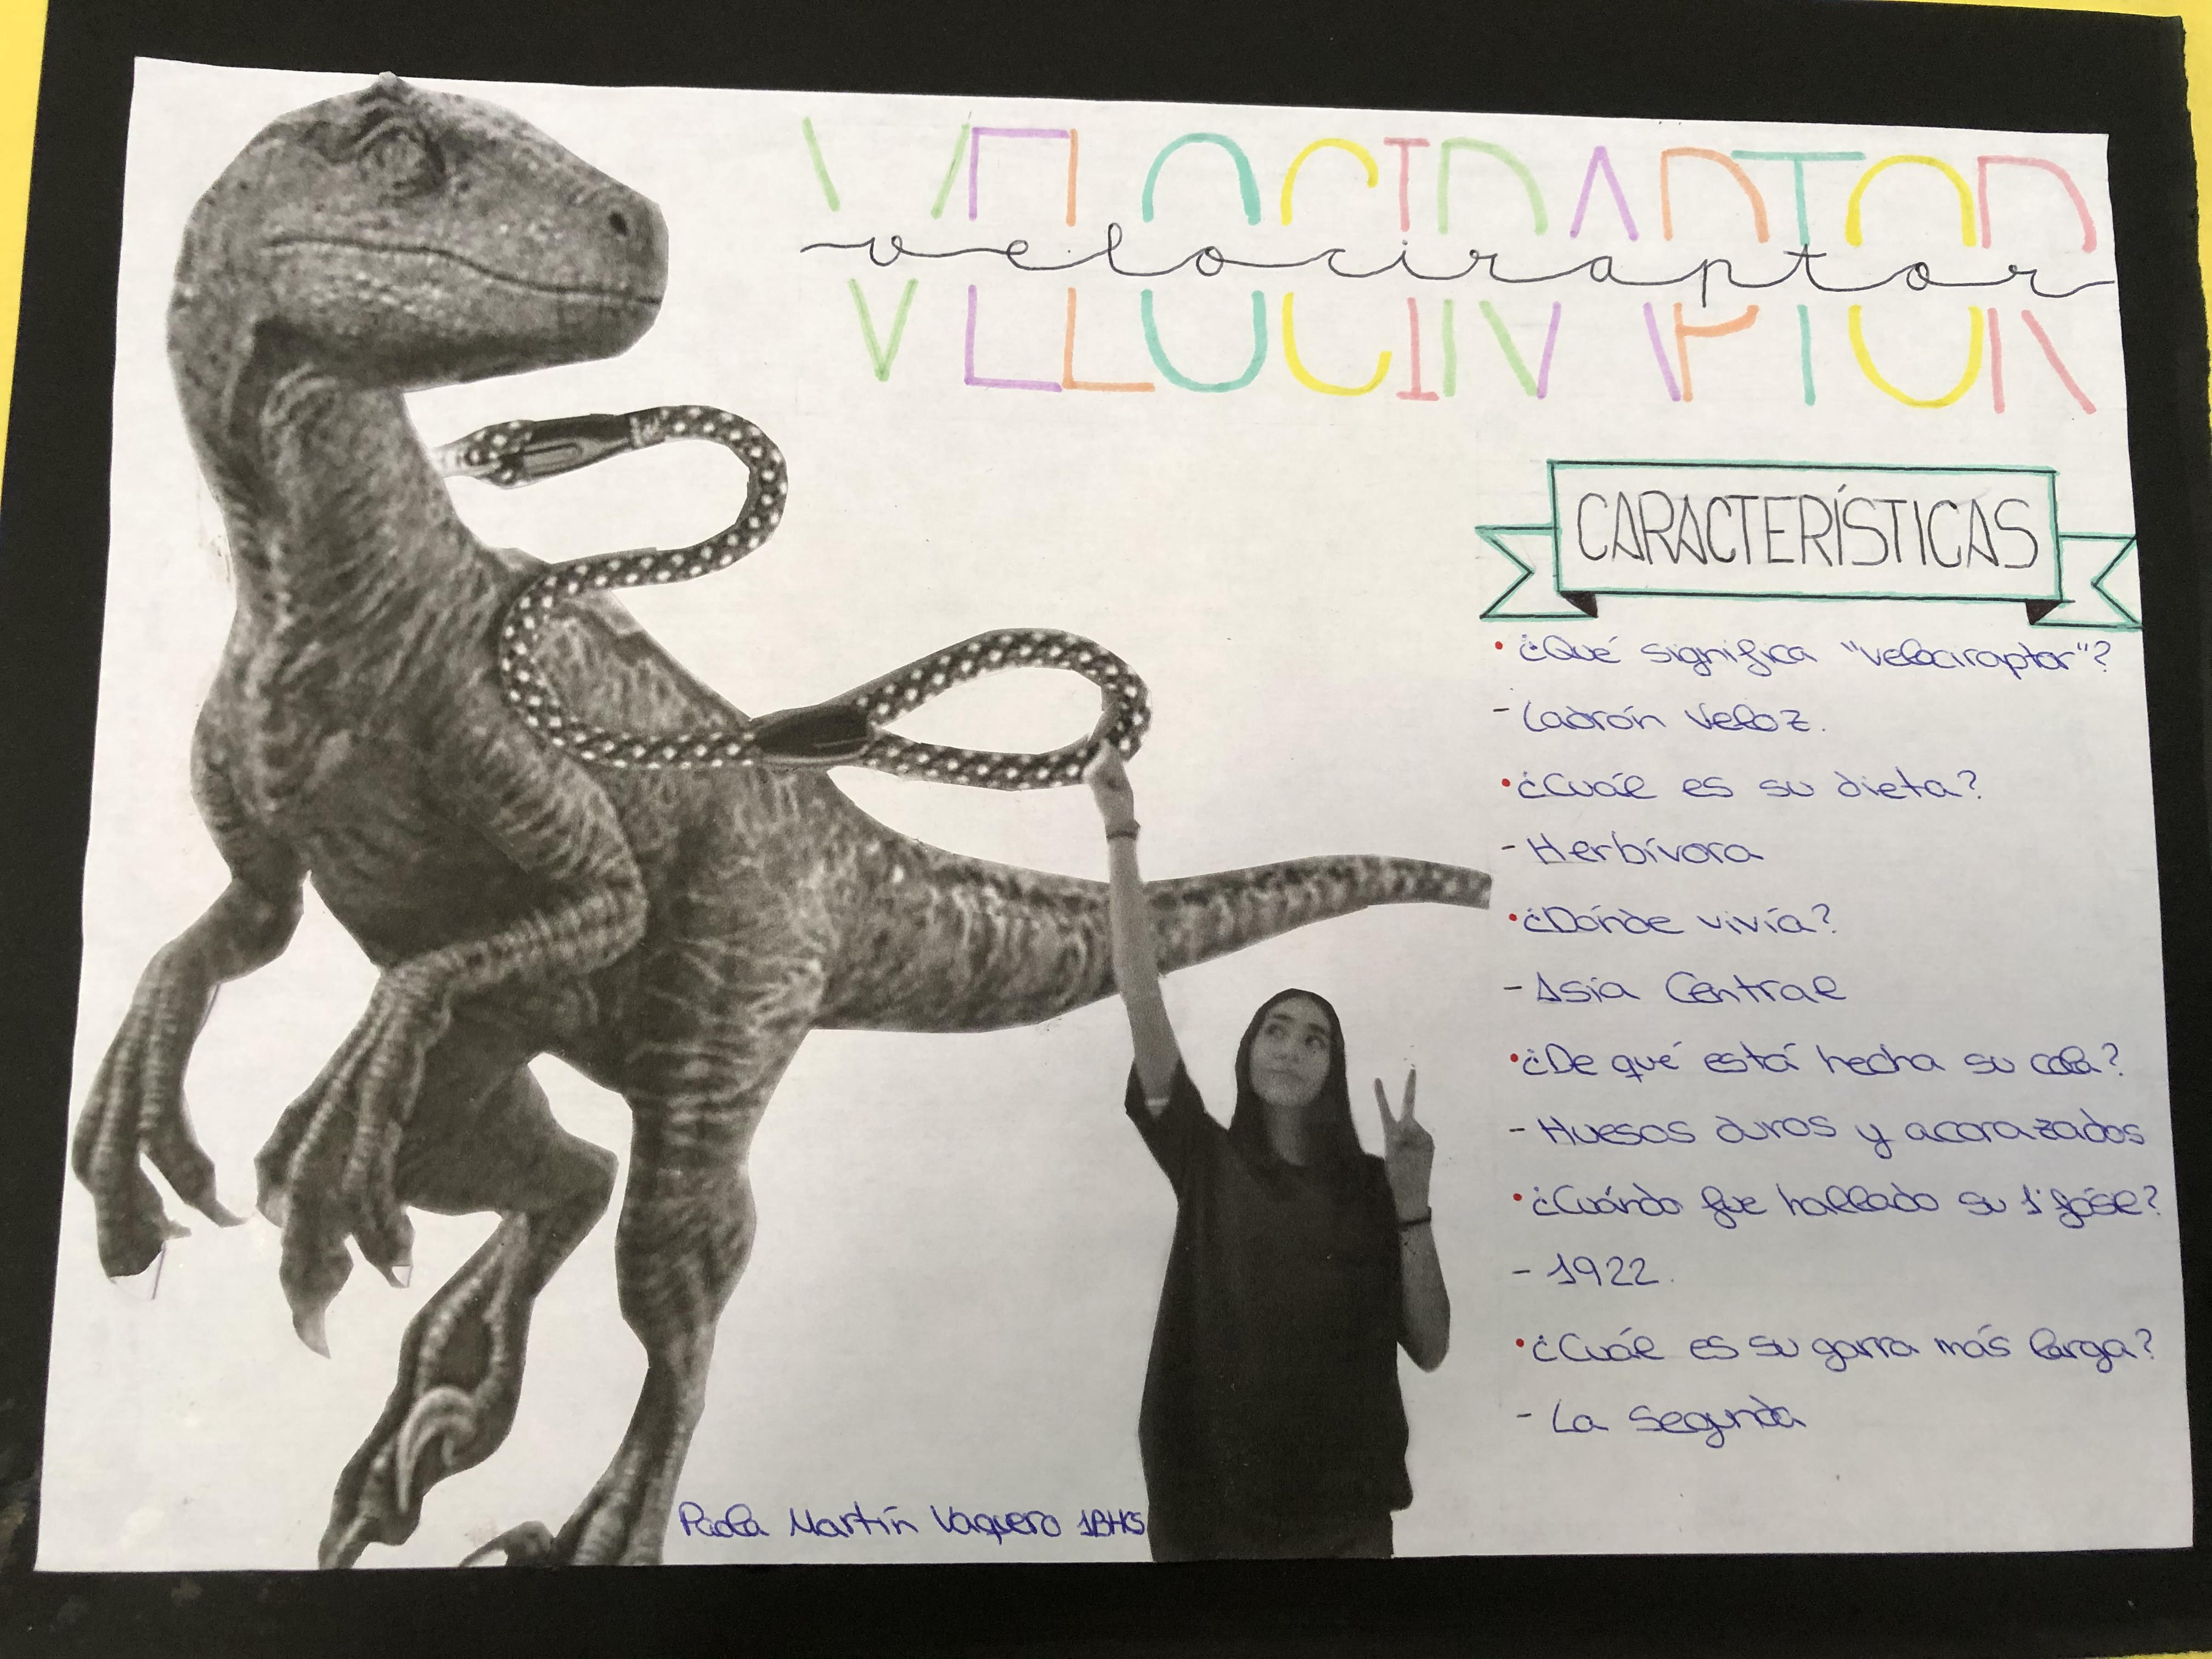 VELOCIRAPTOR
velociraptor
CARACTERÍSTICAS
• ¿Qué significa "velociraptor"?
- Ladrón Veloz.
• ¿Cuál es su dieta?
- Herbívora
• ¿Dónde vivía?
- Asia Central
• ¿De qué está hecha su cola?
- Huesos duros y acorazados
• ¿Cuándo fue hallado su 1º fósil?
- 1922.
• ¿Cuál es su garra más larga?
- La segunda
Paola Martín Vaquero 1BHCS